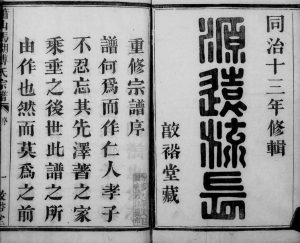 同治十三年修輯
源遠流長
敔裕堂藏
重修宗譜序
譜何爲而作仁人孝子
不忍忘其先澤著之家
乘垂之後世此譜之所
由作也然而莫爲之前